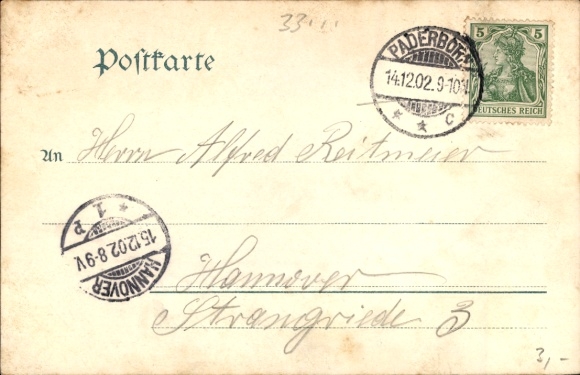 33...
Postkarte
PADERBORN
14.12.02.9-10N
* * c
5 5
DEUTSCHES REICH
An Herrn Alfred Reitmeier
* 1. P
15.12.02.8-9V
HANNOVER
Hannover
Strangriede 3
3,-